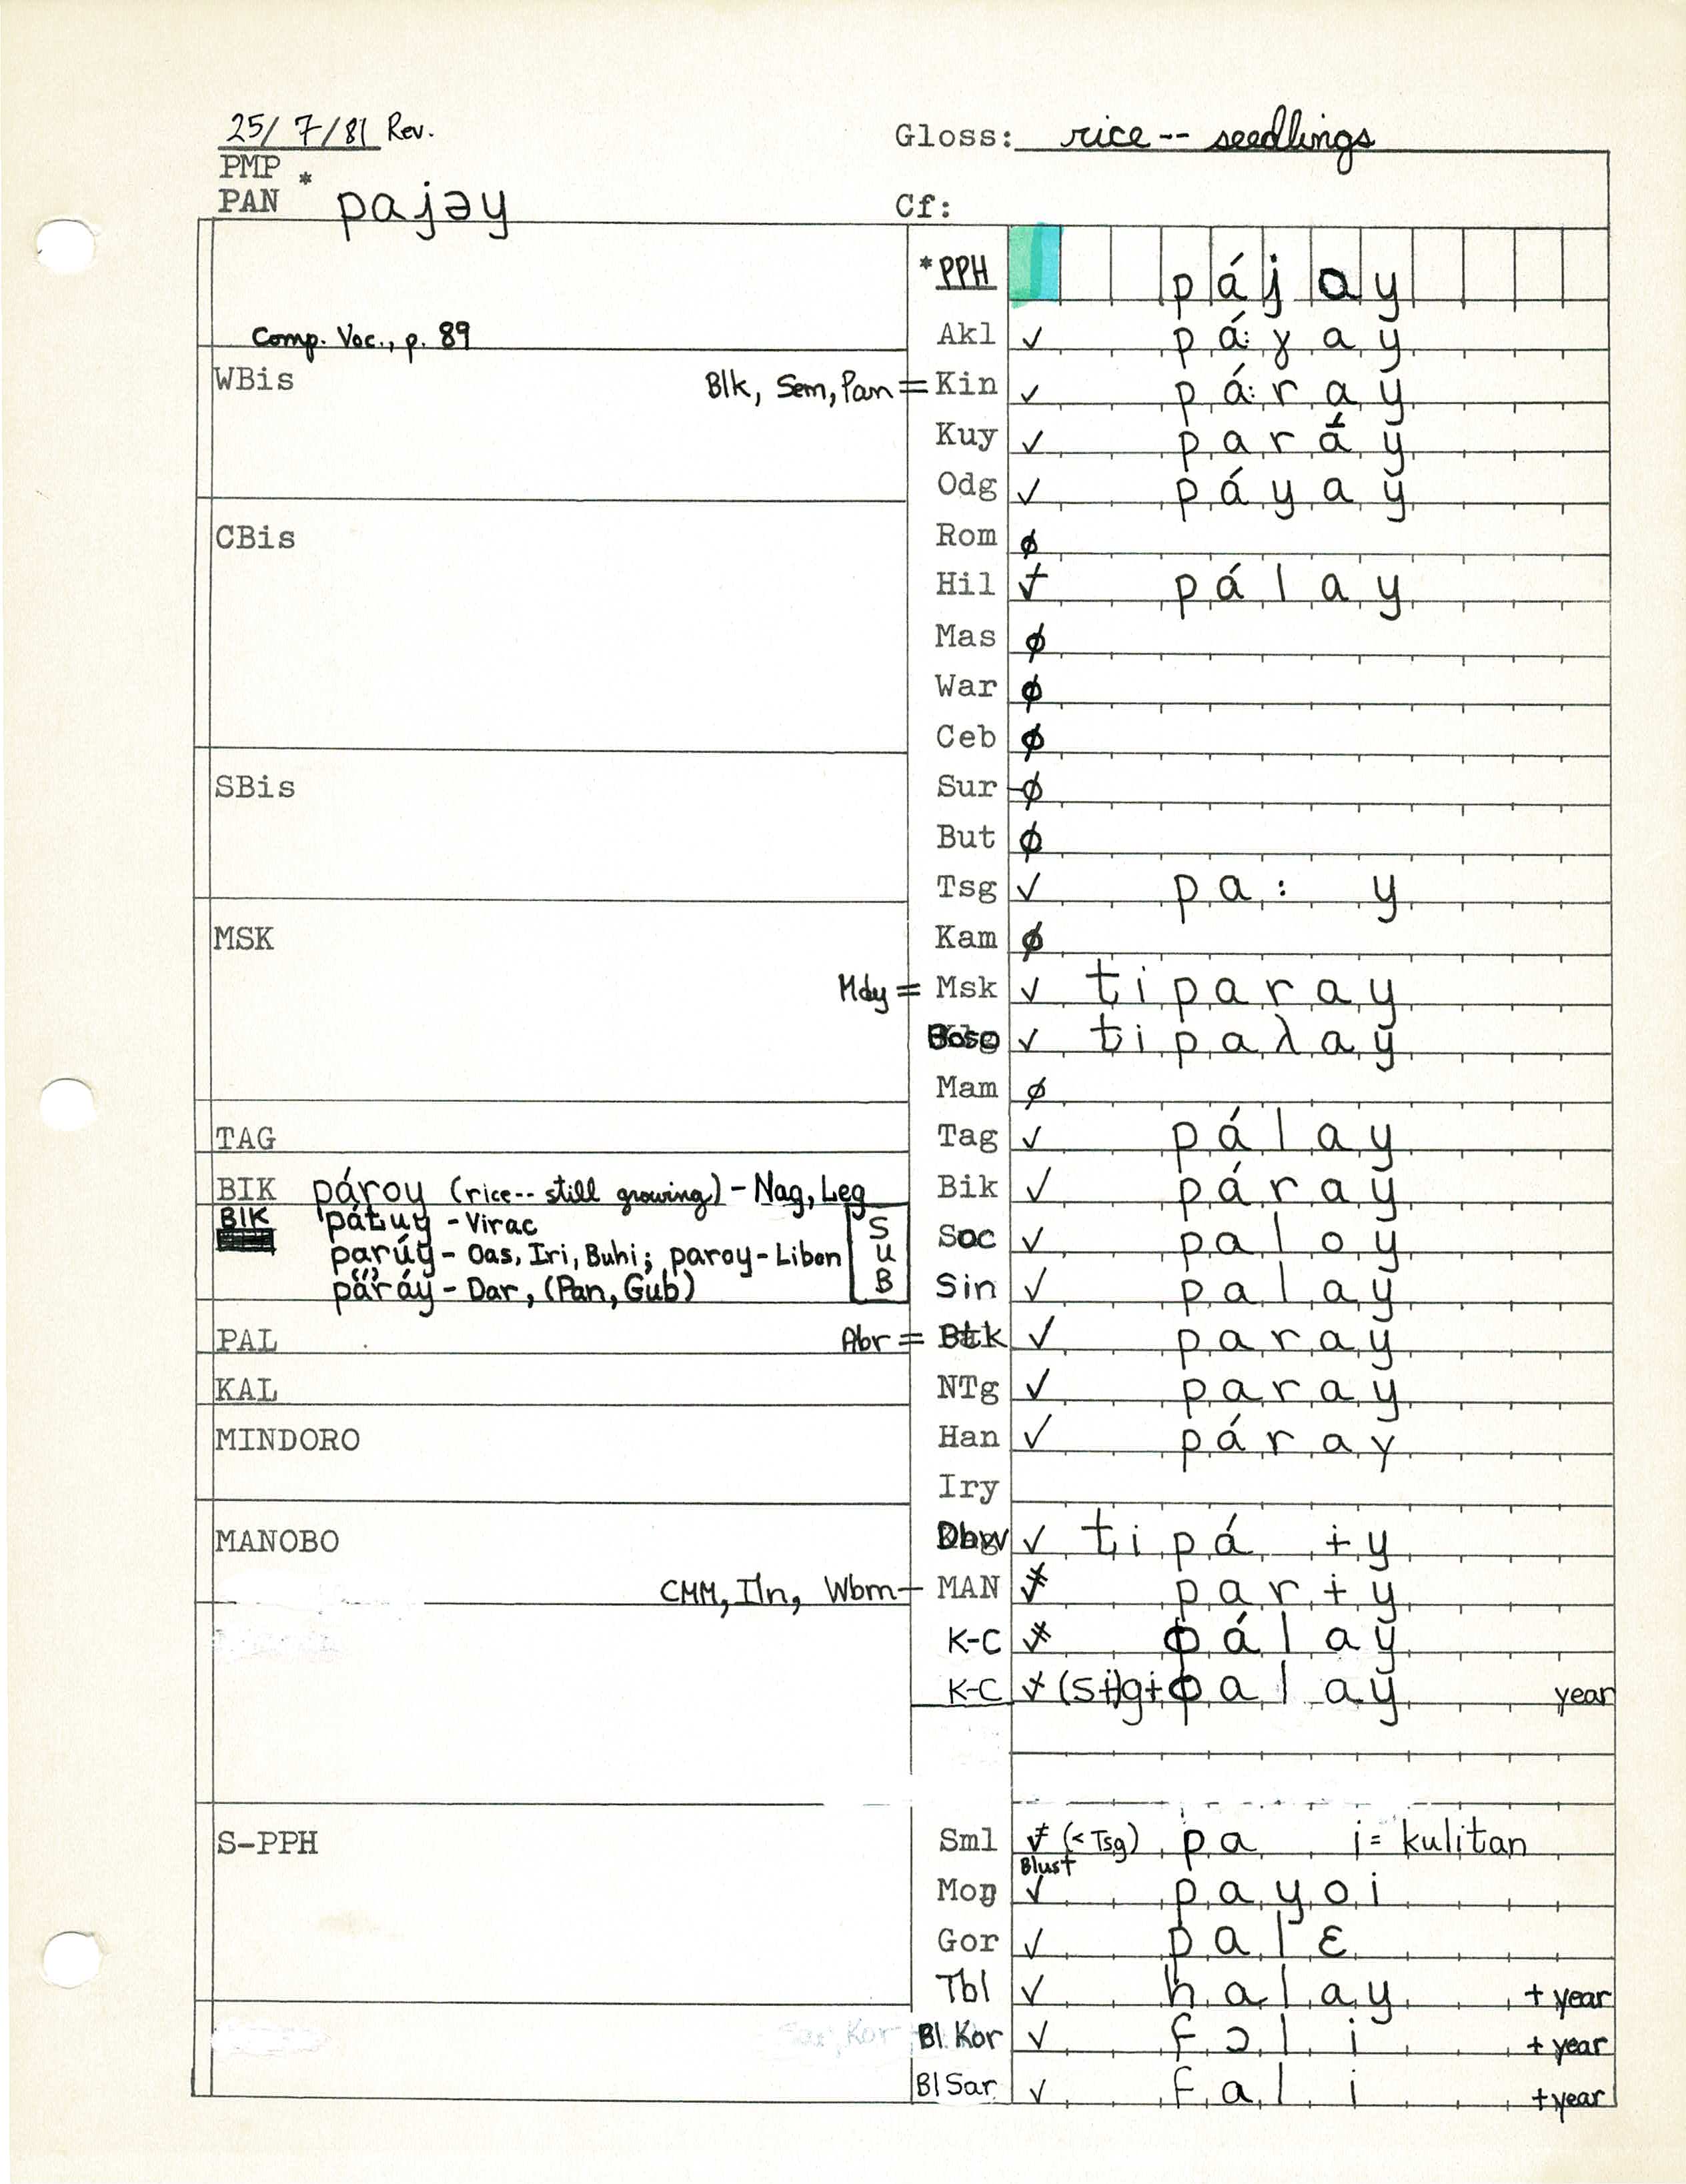 25/7/81 Rev. Gloss: rice -- seedlings
PMP
PAN * pajəy Cf:
*PPH pájay
Comp. Voc., p. 89 Akl ✓ pá:ɣay
WBis Blk, Sem, Pan = Kin ✓ pá:ray
Kuy ✓ paráy
Odg ✓ páyay
CBis Rom ø
Hil ✓ pálay
Mas ø
War ø
Ceb ø
SBis Sur ø
But ø
Tsg ✓ pa: y
MSK Kam ø
Mdy = Msk ✓ tiparay
✓ tipaλay
Mam ø
TAG Tag ✓ pálay
BIK pároy (rice -- still growing) - Nag, Leg Bik ✓ páray
BIK - Virac SUB Soc ✓ paloy
parúy - Oas, Iri, Buhi; paroy - Libon
- Dar, (Pan, Gub) Sin ✓ palay
PAL Abr = Btk ✓ paray
KAL NTg ✓ paray
MINDORO Han ✓ páray
Iry
MANOBO Dbw ✓ tipá ɨy
CMM, Iln, Wbm - MAN ✓ parɨy
K-C ✓ ɸálay
K-C ✓ (sɨ)gɨɸalay year
S-PPH Sml ✓ (< Tsg) pa i = kulitan
Blust
Moŋ ✓ payoi
Gor ✓ palɛ
Tbl ✓ halay + year
Bl Kor ✓ fɔli + year
Bl Sar ✓ fali + year